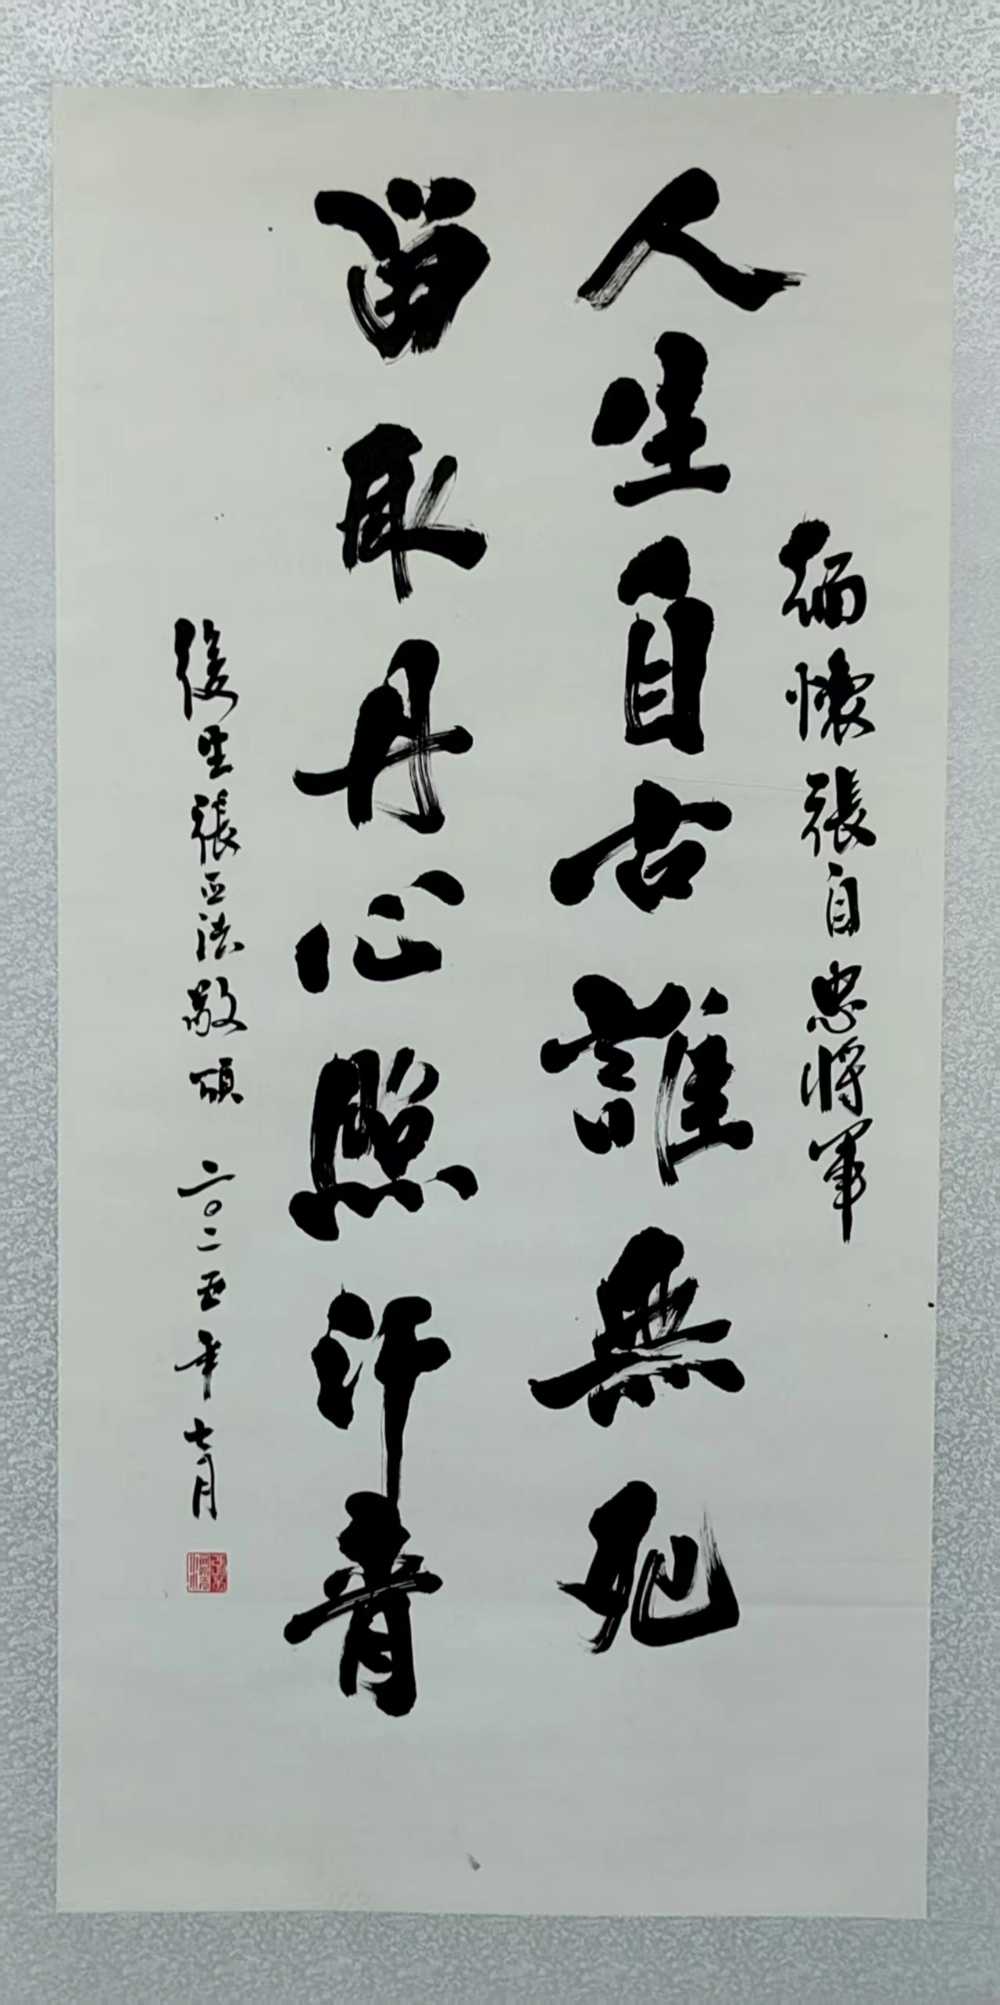 緬懷張自忠將軍
人生自古誰無死
留取丹心照汗青
後生張正法敬頌 二〇二五年七月